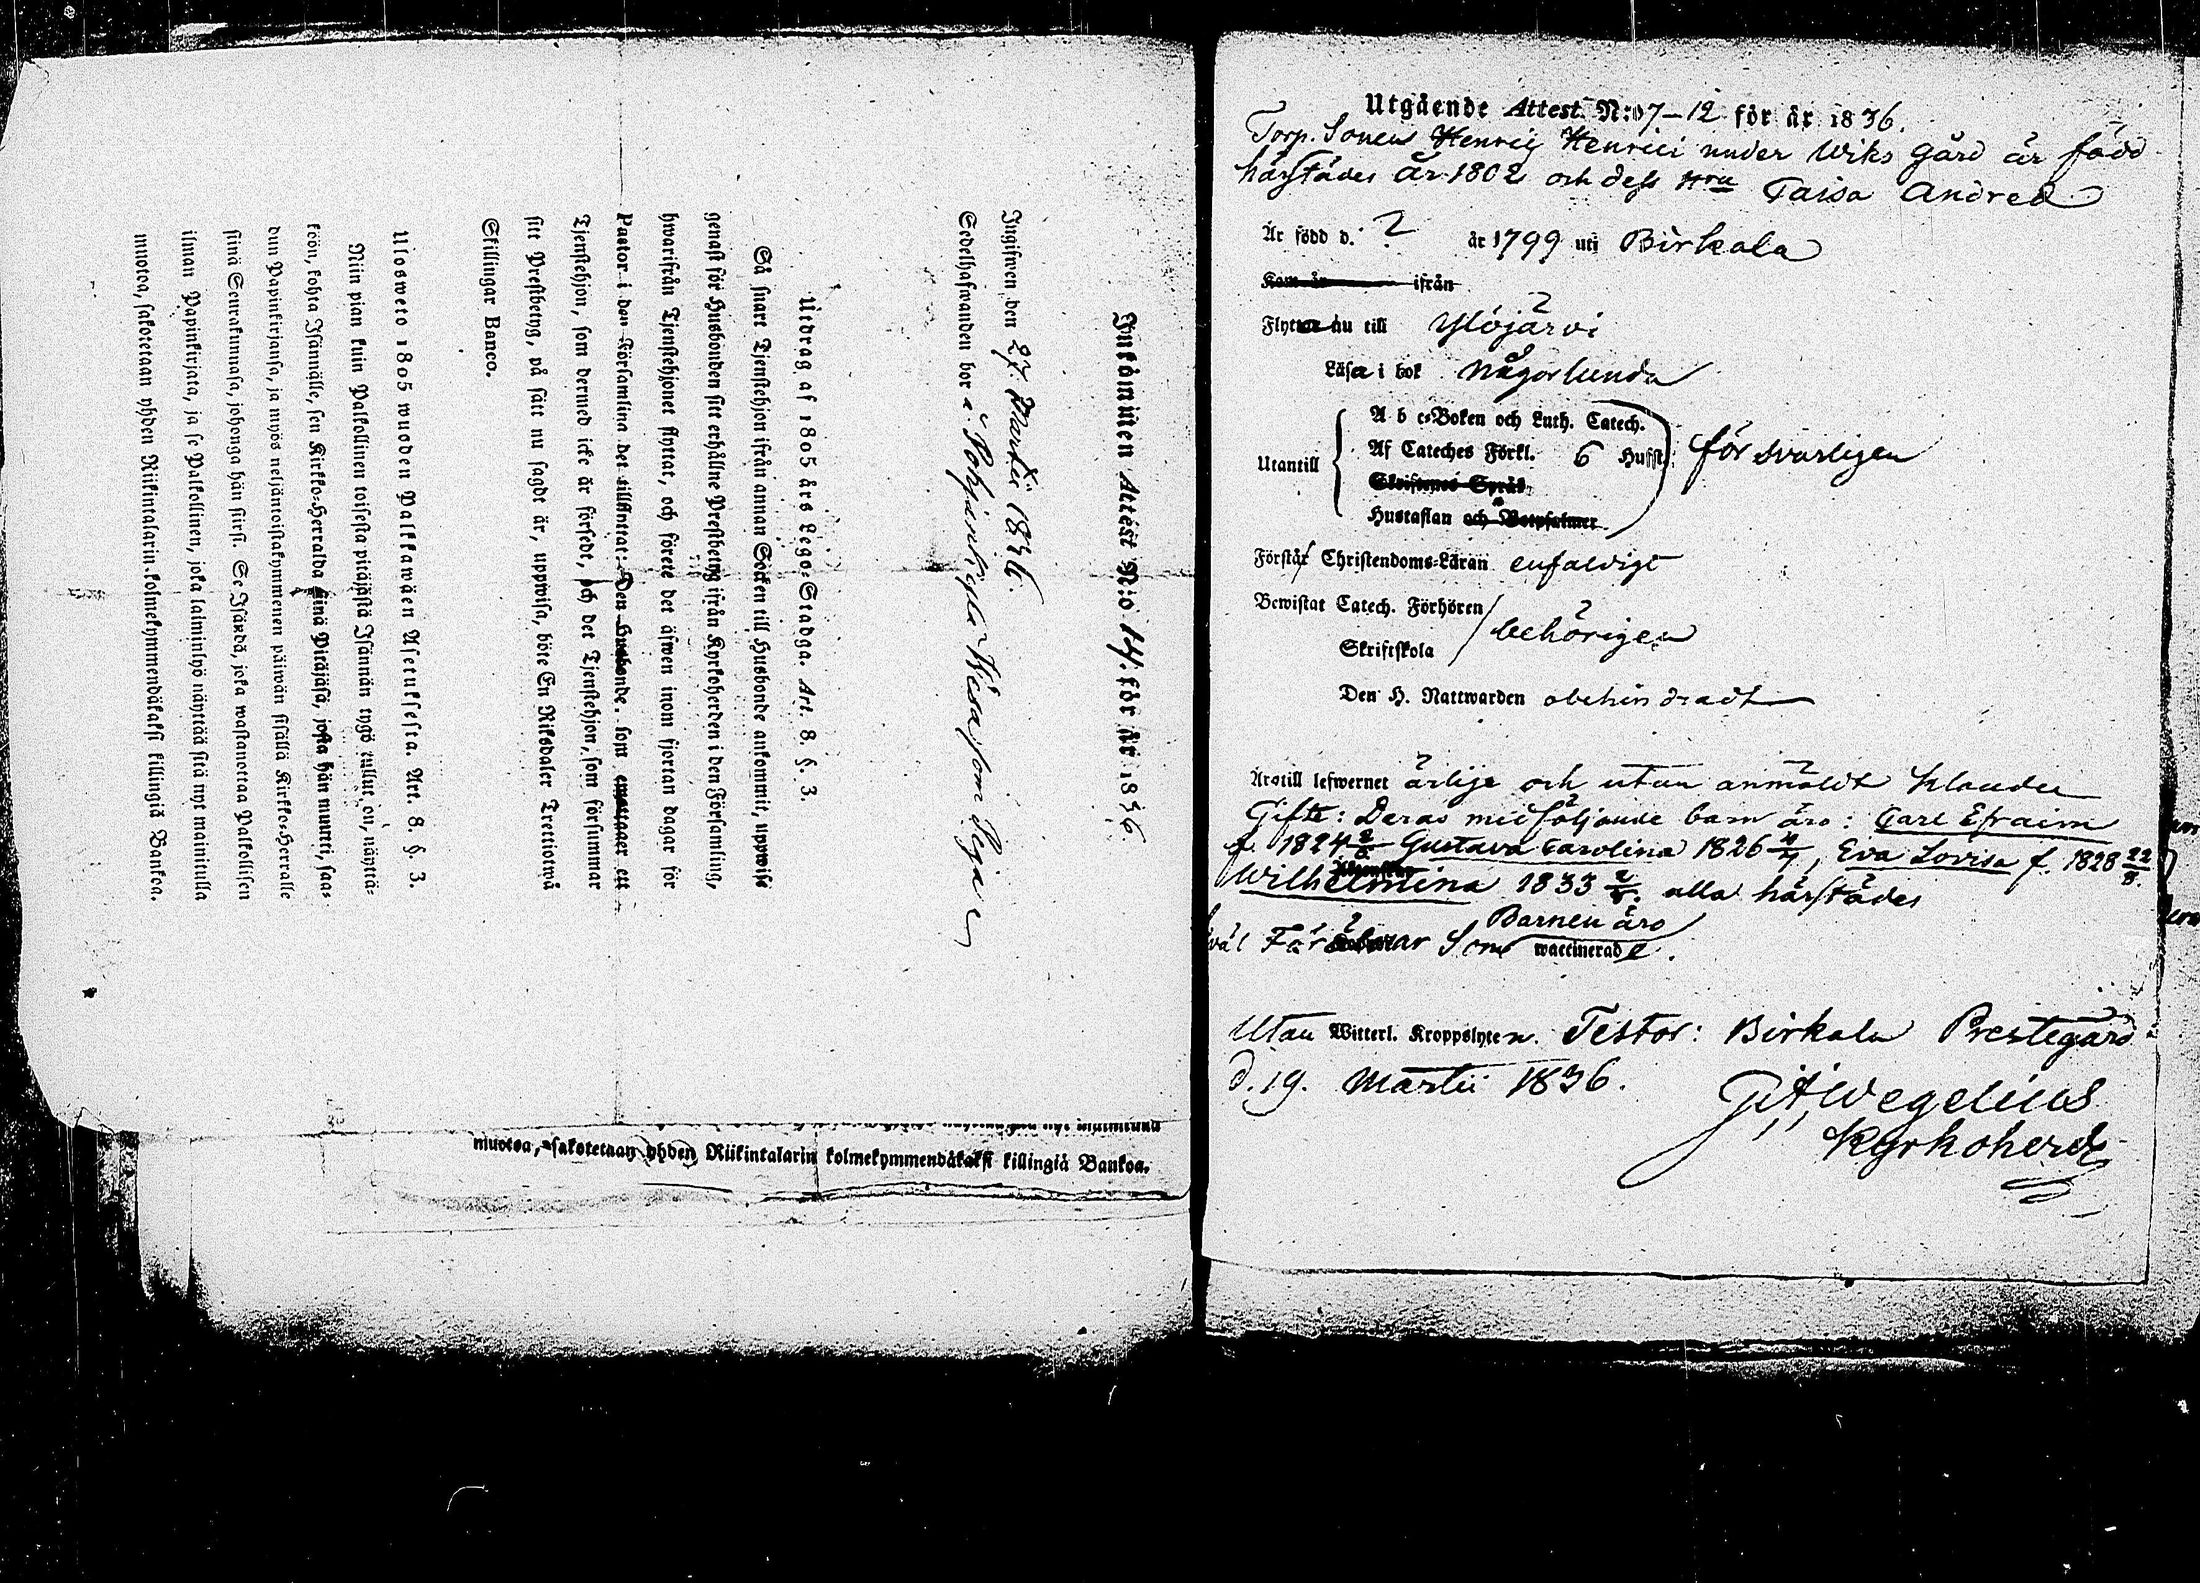 Inkommen Attest N:o 14. för år 1836.
Ingifwen den 27 Martii 1836.
Sedelhafwanden bor å Pohjankylä Wäsa som Pigan
Utdrag af 1805 års Lego-Stadga. Art. 8. §. 3.
Så snart Tjenstehjon ifrån annan Socken till Husbonde ankommit, uppwise
genast för Husbonden sitt erhållne Prestbetyg ifrån Kyrkoherden i den Församling,
hwarifrån Tjenstehjonet flyttar, och förete det äfwen inom fjortan dagar för
Pastor i den Församling det tillflyttat: Den Husbonde, som emottager ett
Tjenstehjon, som dermed icke är försedt, och det Tjenstehjon, som försummar
sitt Prestbetyg, på sätt nu sagdt är, uppwisa, böte En Riksdaler Trettiotwå
Skillingar Banco.
Ulosweto 1805 wuoden Palkkawäen Asetuksesta. Art. 8. §. 3.
Niin pian kuin Palkollinen toisesta pitäjästä Isännän tygö tullut on, näyttä-
köön, kohta Isännälle, sen Kirkko-Herralda siinä Pitäjäsä, josta hän muutti, saa-
dun Papinkirjansa, ja myös neljäntoistakymmenen päiwän sisällä Kirkko-Herralle
siinä Seurakunnasa, johonga hän siirsi. Se Isändä, joka wastanottaa Palkollisen
ilman Papinkirjata, ja se Palkollinen, joka laiminlyö näyttää sitä nyt mainitulla
muotoa, sakotetaan yhden Riikintalarin kolmekymmendäkaksi killingiä Bankoa.
muotoa, sakotetaan yhden Riikintalarin kolmekymmendäkaksi killingiä Bankoa.
Utgående Attest N:o 7-12 för år 1836.
Torp. Sonen Henric Henrici under Wiks gård är född
härstädes år 1802 och dess Hru Caisa Andred
Är född d. ? år 1799 uti Birkala
Kom år ifrån
Flyttar nu till Ylöjärvi
Läser i bok någorlunda
Utantill
A b c-Boken och Luth. Catech.
Af Cateches Förkl. 6 Hufst.
Skriftenes Språk
Hustaflan och Botpsalmer
försvarligen
Förstår Christendoms-Läran enfaldigt
Bewistat Catech. Förhören
Skriftskola
behörigen
Den H. Nattwarden obehindradt
Är till lefwernet ärlige och utan anmäldt klander
Gifte: Deras medföljande barn äro: Carl Efraim
f. 1824 2/8 Gustava Carolina 1826 4/7, Eva Lovisa f. 1828 22/8.
Wilhelmina 1833 2/5. alla härstädes
wäl Föräldrar Som Barnen äro
waccinerade.
Utan Witterl. Kroppslyten. Testor: Birkala Prestegård
d. 19. Martii 1836.
G. A. Wegelius
Kyrkoherde